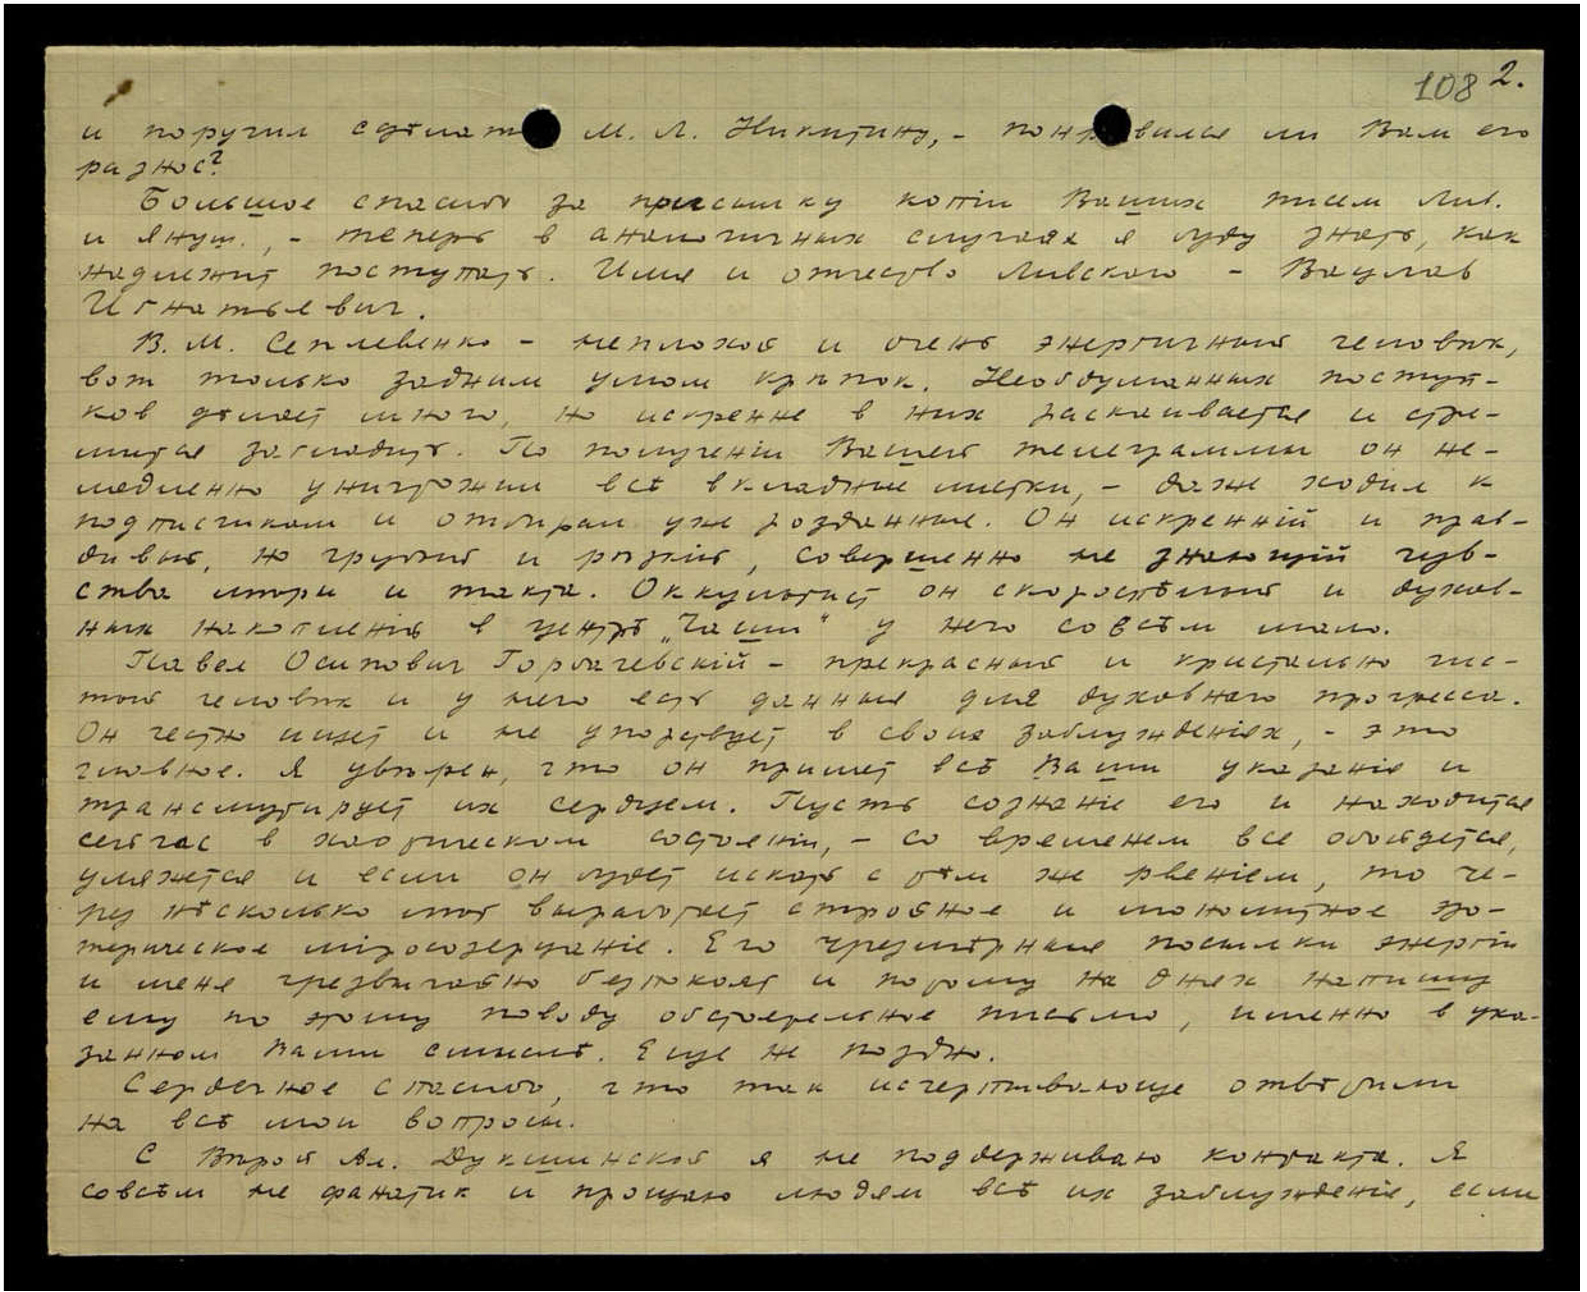 108 2.
и поручил сдѣлать М. Л. Никитину, - понравился ли Вам его
разнос?
Большое спасибо за присылку копіи Ваших писем Лив.
и Януш., - теперь в аналогичных случаях я буду знать, как
надлежит поступать. Имя и отчество Ливского - Вацлав
Игнатьевич.
В. М. Сеплевенко - неплохой и очень энергичный человѣк,
вот только задним умом крѣпок. Необдуманных поступ-
ков дѣлает много, но искренне в них раскаивается и стре-
мится загладить. По полученіи Вашей телеграммы он не-
медленно уничтожил всѣ вкладные листки, - даже ходил к
подписчикам и отбирал уже розданные. Он искренній и прав-
дивый, но грубый и рѣзкій, совершенно не знающій чув-
ства мѣры и такта. Оккультист он скороспѣлый и духов-
ных накопленій в центрѣ „Чаши“ у него совсѣм мало.
Павел Осипович Горбачевскій - прекрасный и кристально чис-
тый человѣк и у него есть данныя для духовнаго прогресса.
Он честно ищет и не упорствует в своих заблужденіях, - это
главное. Я увѣрен, что он примет всѣ Ваши указанія и
трансмутирует их сердцем. Пусть сознаніе его и находится
сейчас в хаотическом состояніи, - со временем все обойдется,
уляжется и если он будет искать с тѣм же рвеніем, то че-
рез нѣсколько лѣт выработает стройное и монолитное эзо-
терическое міросозерцаніе. Его чрезмѣрныя посылки энергіи
и меня чрезвычайно безпокоят и потому на днях напишу
ему по этому поводу обстоятельное письмо, именно в ука-
занном Вами смыслѣ. Еще не поздно.
Сердечное спасибо, что так исчерпывающе отвѣтили
на всѣ мои вопросы.
С Вѣрой Ал. Дукшинской я не поддерживаю контакта. Я
совсѣм не фанатик и прощаю людям всѣ их заблужденія, если